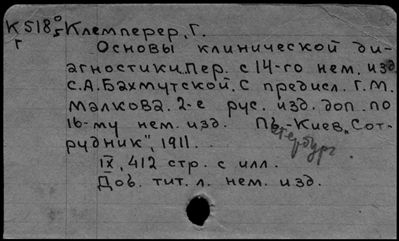 К518⁰⁄₅ Клемперер, Г.
Г
Основы клинической ди-
агностики. Пер. с 14-го нем. изд.
С.А. Бахмутской, С предисл. Г.М.
Малкова. 2-е рус. изд. доп. по
16-му нем. изд. Пб.-Киев, "Сот-
етербург
рудник", 1911.
IX, 412 стр. с илл.
Доб. тит. л. нем. изд.